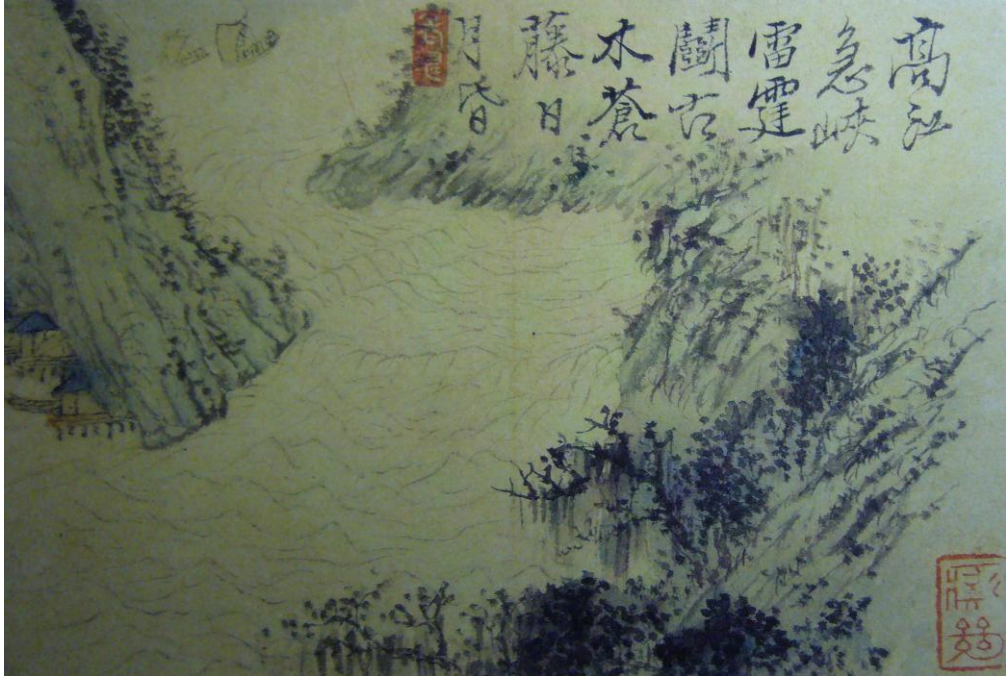 高江
急峽
雷霆
鬪古
木蒼
藤日
月昏